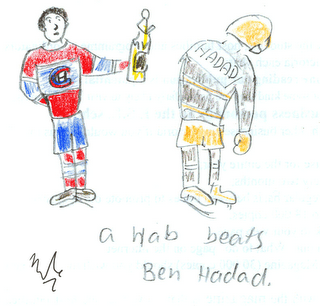 HADAD
a Hab beats
Ben Hadad.